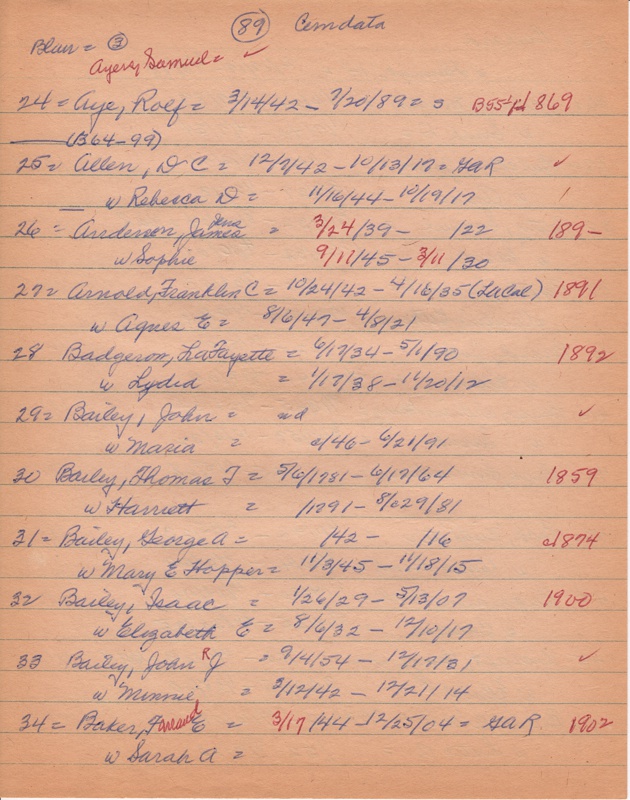 89 Cemdata
Blair = 3
Ayers, Samuel = ✓
24 = Aye, Rolf = 3/14/42 - 7/20/89 = s 869
(1364-99)
25 = Allen, D C = 12/7/42 - 10/13/17 = GAR ✓
w Rebecca D = 11/16/44 - 10/19/17
26 = Anderson, James Jens = 3/24/39 - /22 189-
w Sophie 9/11/45 - 3/11/30
27 = Arnold, Franklin C = 10/24/42 - 4/16/35 (LaCal) 1891
w Agnes E = 8/6/47 - 4/8/21
28 Badgerow, LaFayette = 6/17/34 - 5/1/90 1892
w Lydia = 1/17/38 - 11/20/12
29 = Bailey, John = nd ✓
w Maria = c/46 - 6/21/91
30 Bailey, Thomas T = 5/6/1781 - 6/17/64 1859
w Harriett = /1791 - 8/29/81
31 = Bailey, George A = /42 - /16 c1874
w Mary E Hopper = 11/3/45 - 11/18/15
32 Bailey, Isaac = 1/26/29 - 5/13/07 1900
w Elizabeth E = 8/6/32 - 12/10/17
33 Bailey, John R J = 9/4/54 - 12/17/31 ✓
w Minnie = 3/12/42 - 12/21/14
34 = Baker, E = 3/17/44 - 12/25/04 = GAR 1902
w Sarah A =